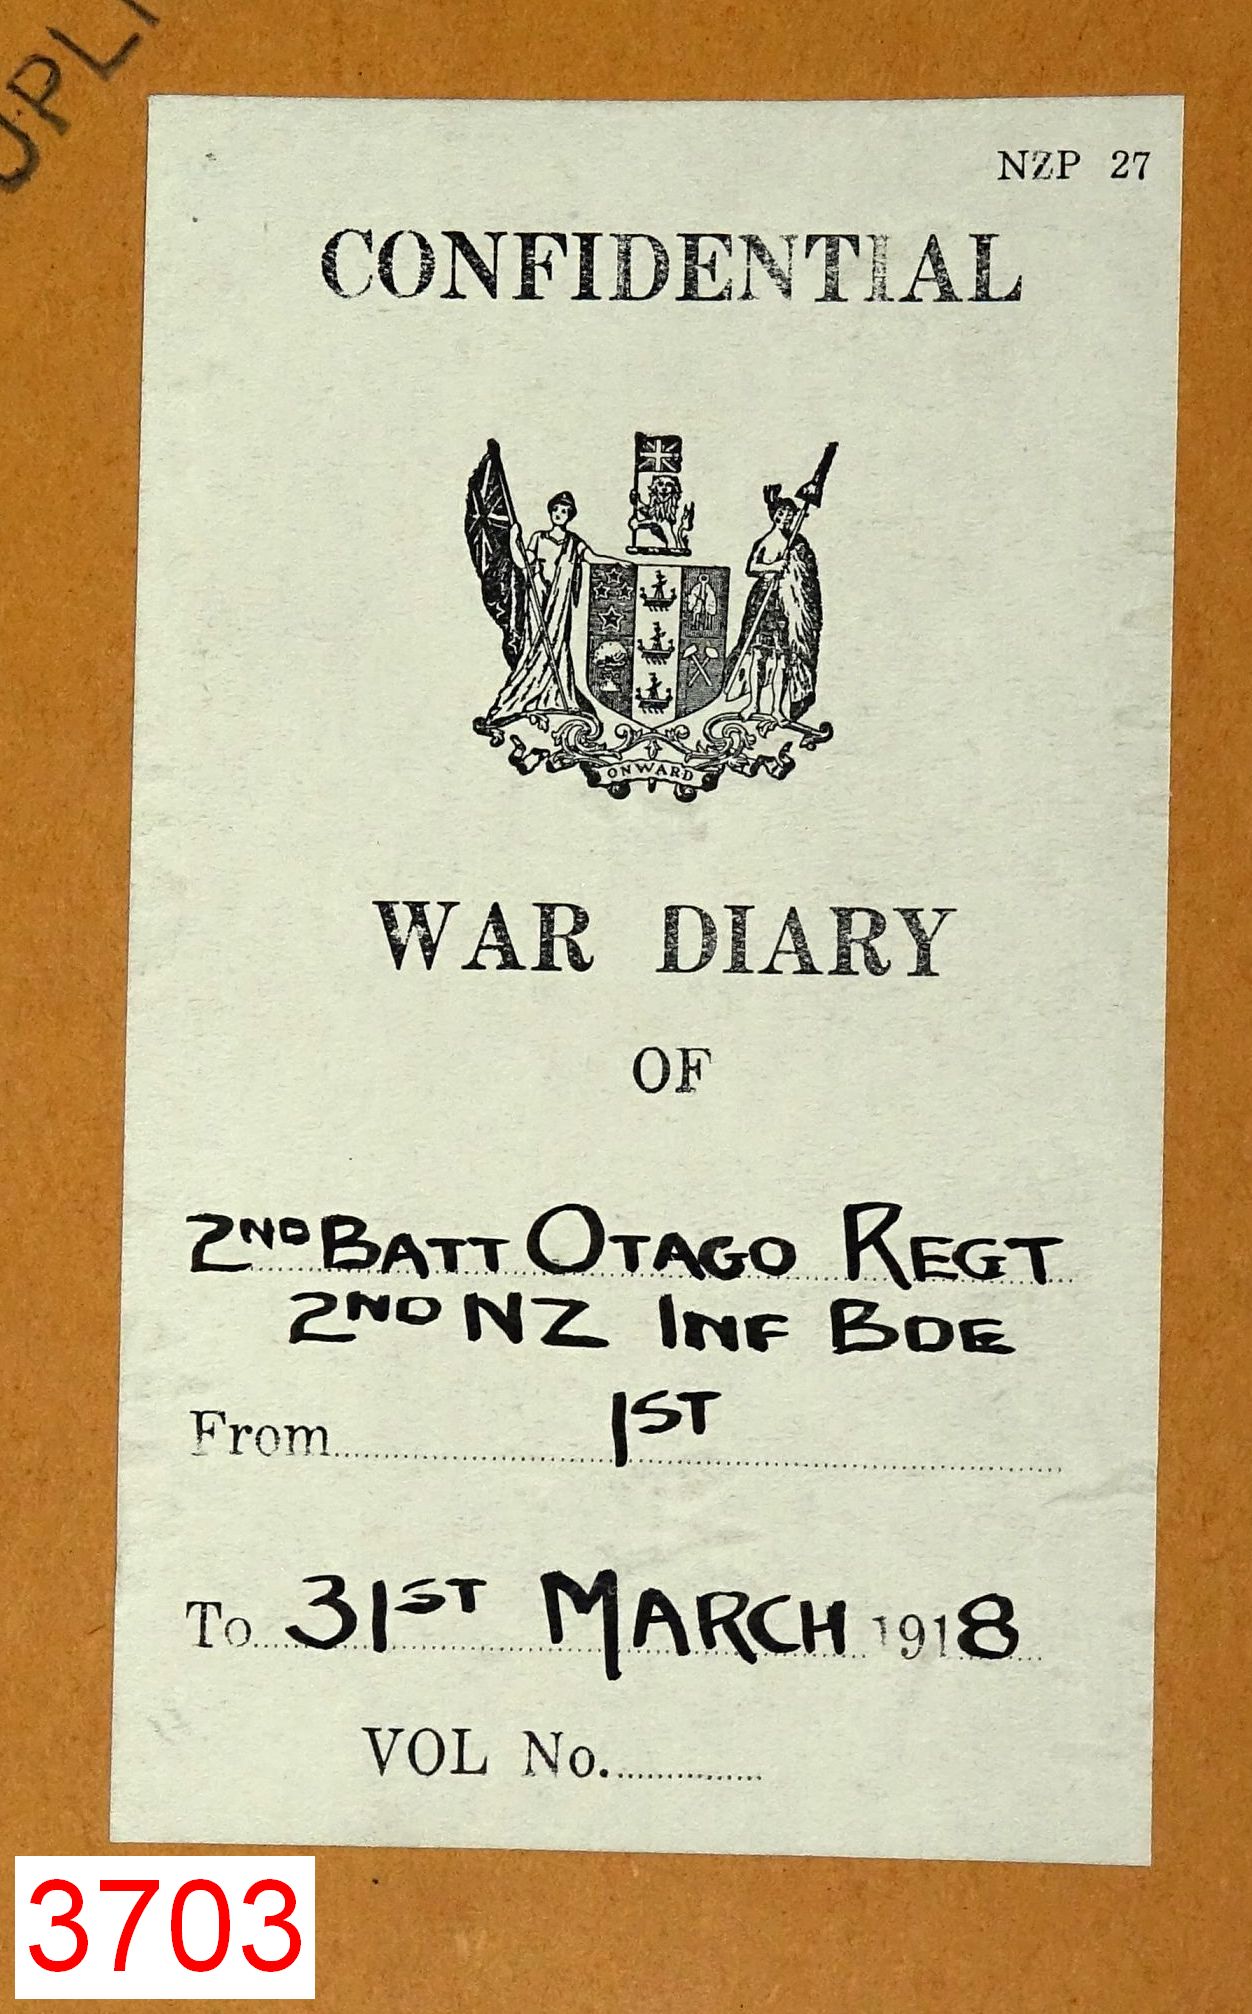 UPLI
NZP 27
CONFIDENTIAL
ONWARD
WAR DIARY
OF
2ND BATT OTAGO REGT
2ND NZ INF BDE
From 1ST
To 31ST MARCH 1918
VOL No.
3703